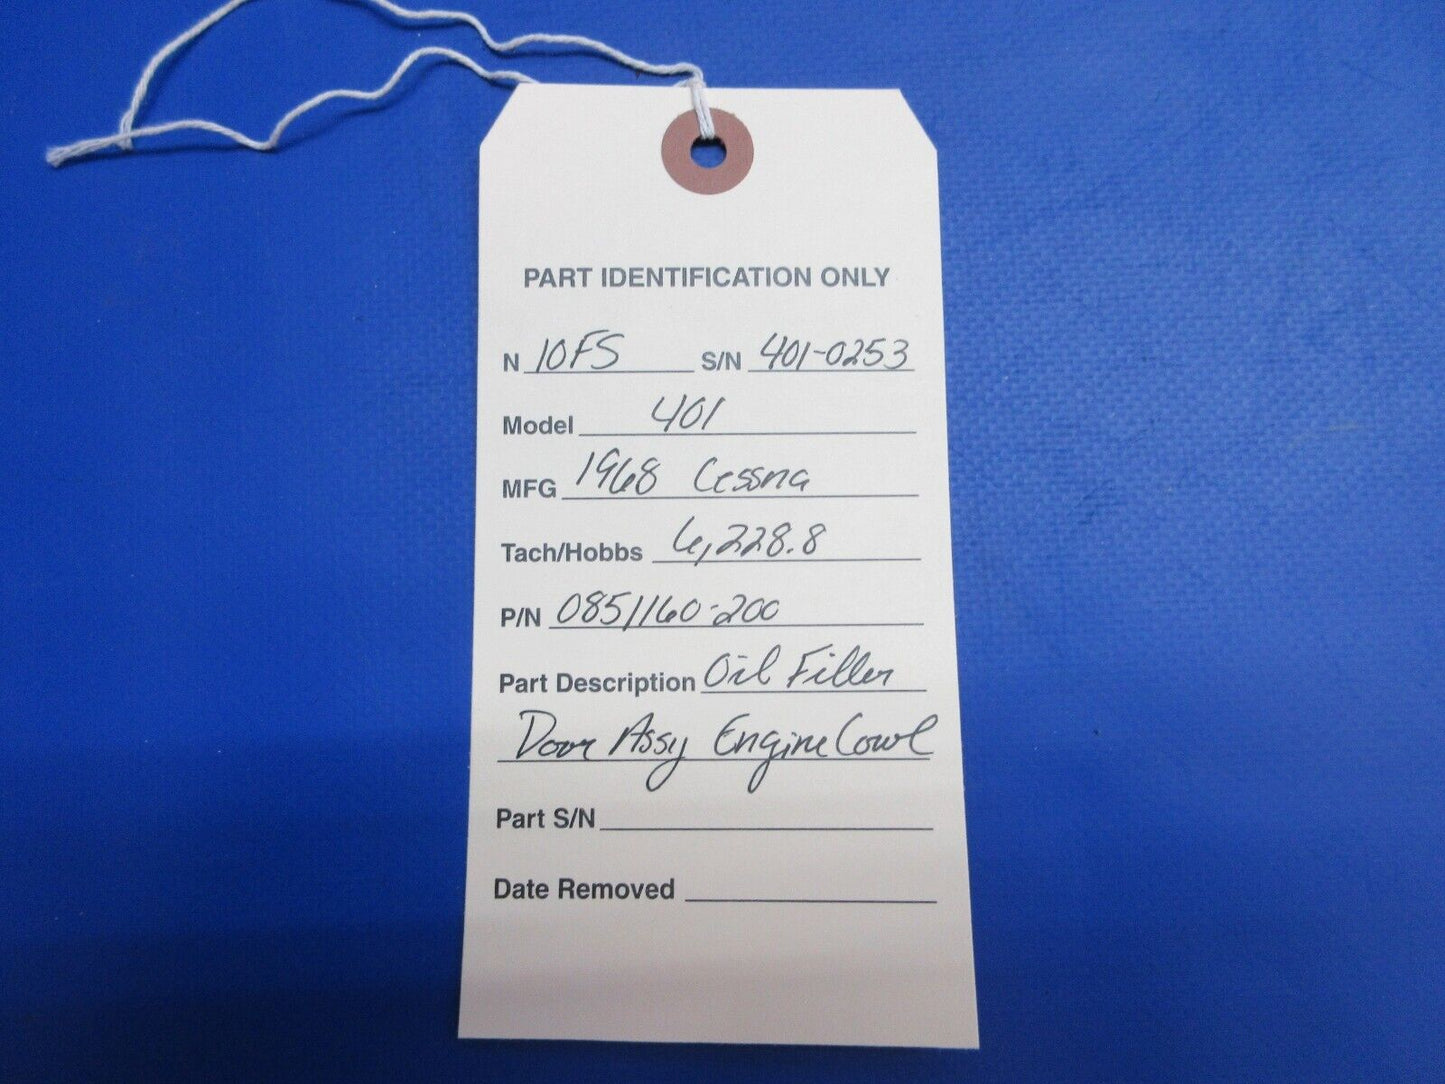 PART IDENTIFICATION ONLY
N 10FS S/N 401-0253
Model 401
MFG 1968 Cessna
Tach/Hobbs 6,228.8
P/N 0851160-200
Part Description Oil Filler
Door Assy Engine Cowl
Part S/N
Date Removed